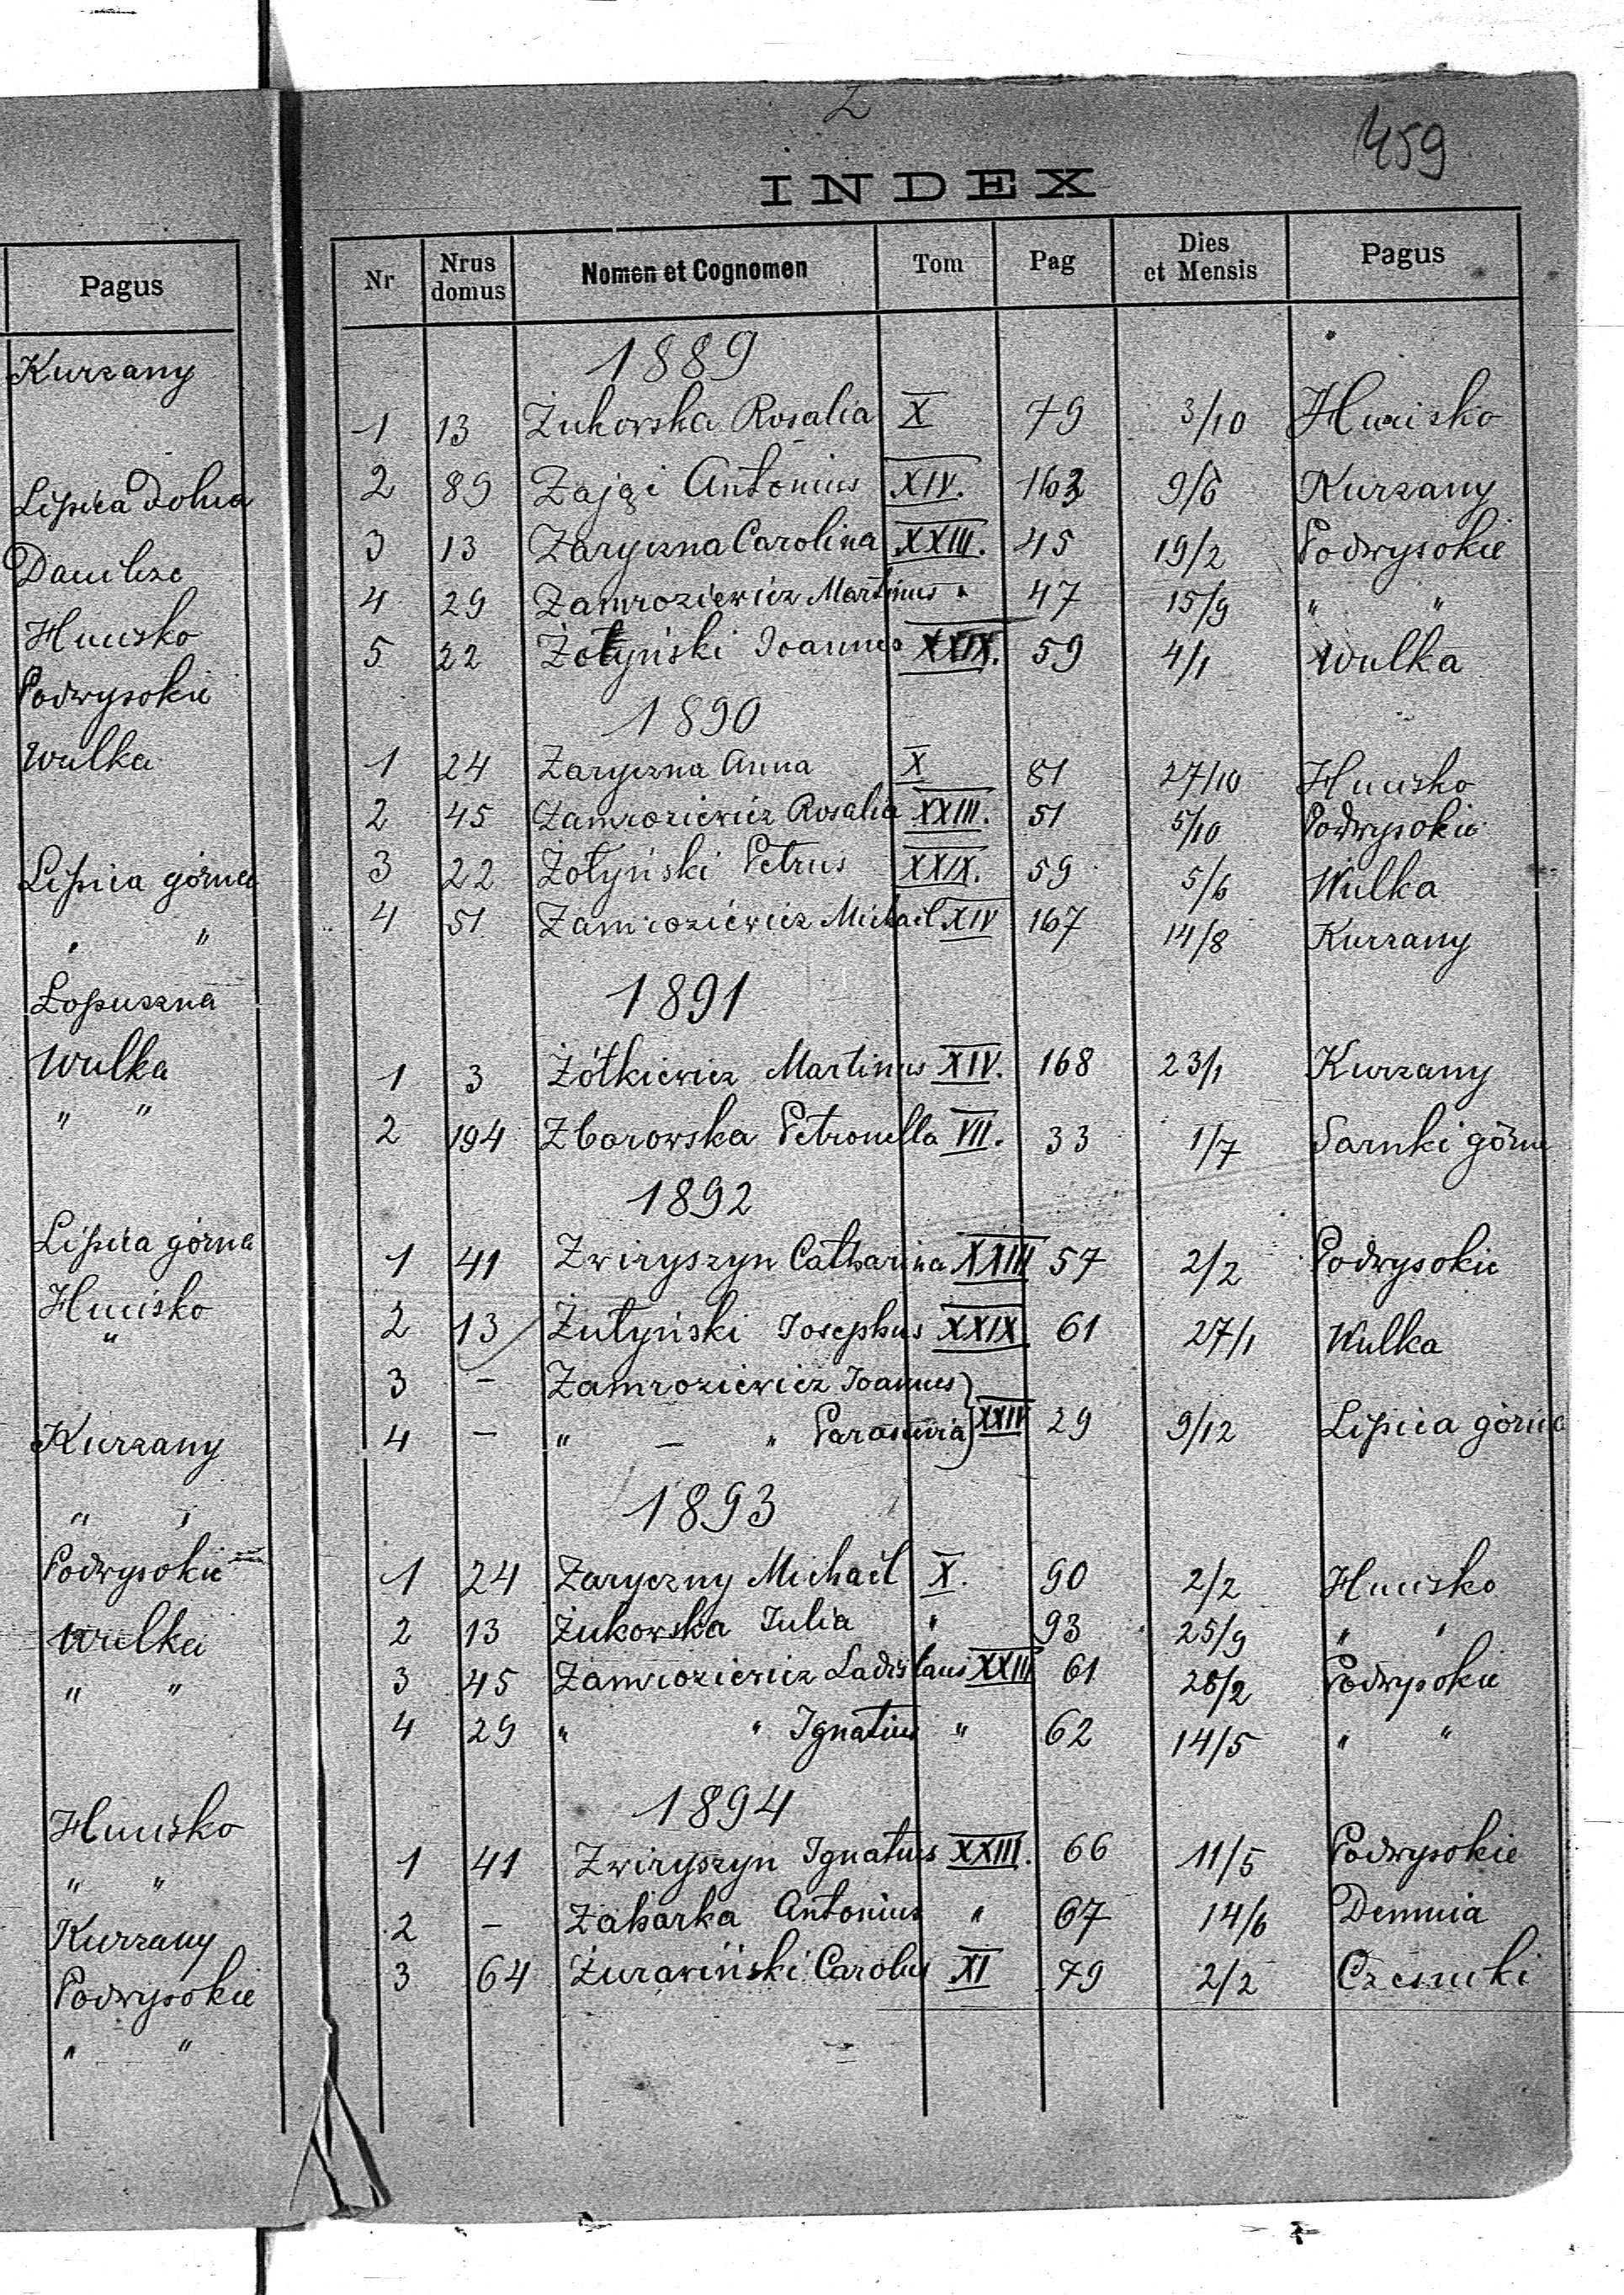 Pagus
Kurzany
Lipica dolna
Danilcze
Hucisko
Podwysokie
Wulka
Lipica górna
" "
Łopuszna
Wulka
" "
Lipica górna
Hucisko
"
Kurzany
" "
Podwysokie
Wulka
" "
Hucisko
" "
Kurzany
Podwysokie
" "
Z
459
INDEX
Nr Nrus domus Nomen et Cognomen Tom Pag Dies et Mensis Pagus
1889
1 13 Żukowska Rosalia X 79 3/10 Hucisko
2 89 Zając Antonius XIV. 163 9/6 Kurzany
3 13 Zaryczna Carolina XXIII. 45 19/2 Podwysokie
4 29 Zamroziewicz Martinus " 47 15/9 " "
5 22 Żołyński Joannes XXIX. 59 4/1 Wulka
1890
1 24 Zaryczna Anna X 81 27/10 Hucisko
2 45 Zamroziewicz Rosalia XXIII. 51 5/10 Podwysokie
3 22 Żołyński Petrus XXIX. 59 5/6 Wulka
4 51 Zamroziewicz Michael XIV 167 14/8 Kurzany
1891
1 3 Żółkiewicz Martinus XIV. 168 23/1 Kurzany
2 194 Zborowska Petronella VII. 33 1/7 Sarnki górne
1892
1 41 Zwiryszyn Catharina XXIII 57 2/2 Podwysokie
2 13 Żułyński Josephus XXIX 61 27/1 Wulka
3 - Zamroziewicz Joannes
4 - " - " Parascevia XXIV 29 9/12 Lipica górna
1893
1 24 Zaryczny Michael X. 90 2/2 Hucisko
2 13 Żukowska Julia " 93 25/9 " "
3 45 Zamroziewicz Ladislaus XXIII 61 28/2 Podwysokie
4 29 " " Ignatius " 62 14/5 " "
1894
1 41 Zwiryszyn Ignatius XXIII. 66 11/5 Podwysokie
2 - Zaharka Antonius " 67 14/6 Demnia
3 64 Żurawiński Carolus XI 79 2/2 Czesniki